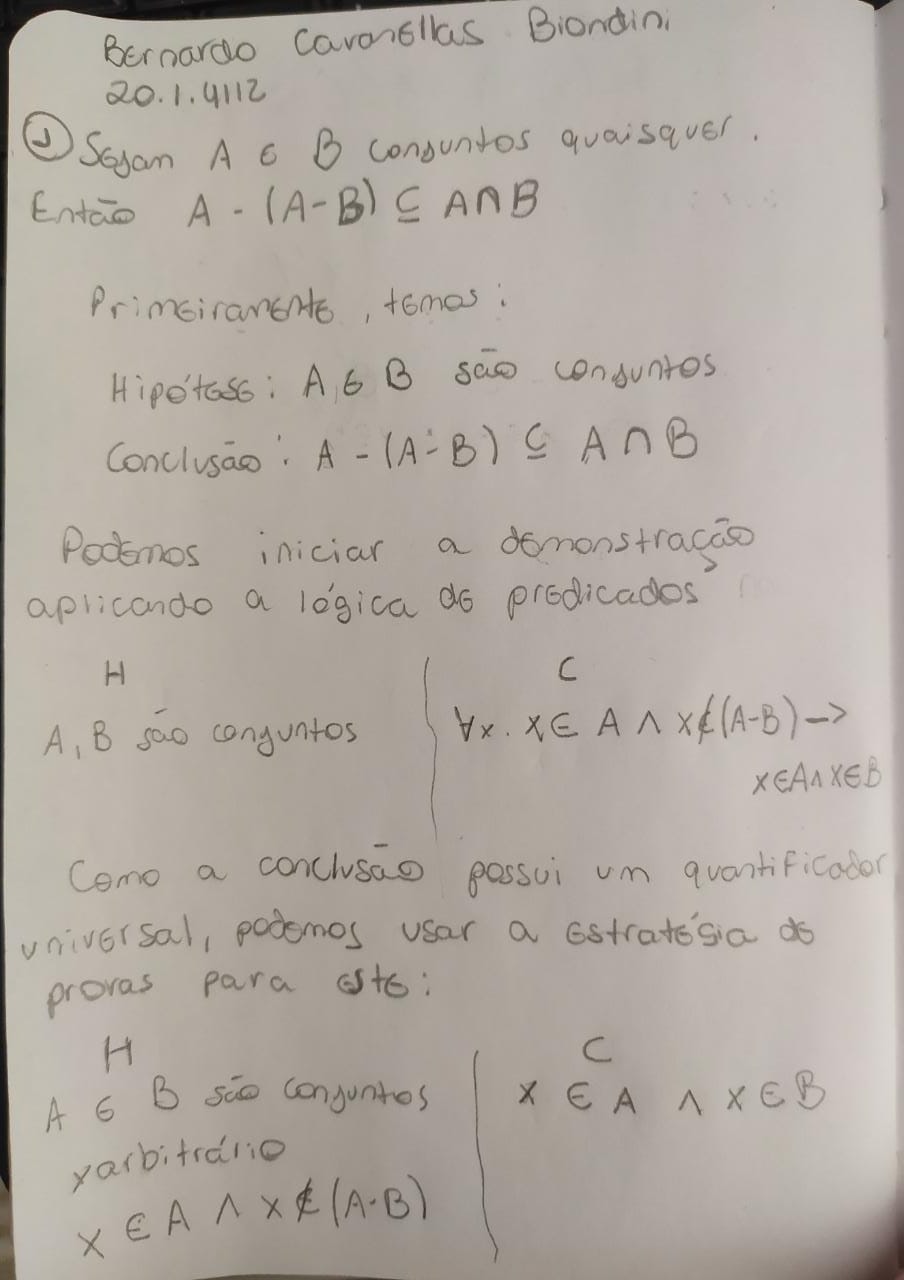 Bernardo Caravellas Biondini
20.1.4112
① Sejam A e B conjuntos quaisquer.
Então A - (A-B) ⊆ A∩B
Primeiramente, temos:
Hipótese: A, e B são conjuntos
Conclusão: A - (A-B) ⊆ A ∩ B
Podemos iniciar a demonstração
aplicando a lógica de predicados
H C
A, B são conjuntos ∀x. x ∈ A ∧ x∉(A-B) →
x∈A ∧ x∈B
Como a conclusão possui um quantificador
universal, podemos usar a estratégia de
provas para este:
H C
A e B são conjuntos x ∈ A ∧ x ∈ B
x arbitrário
x ∈ A ∧ x ∉ (A-B)